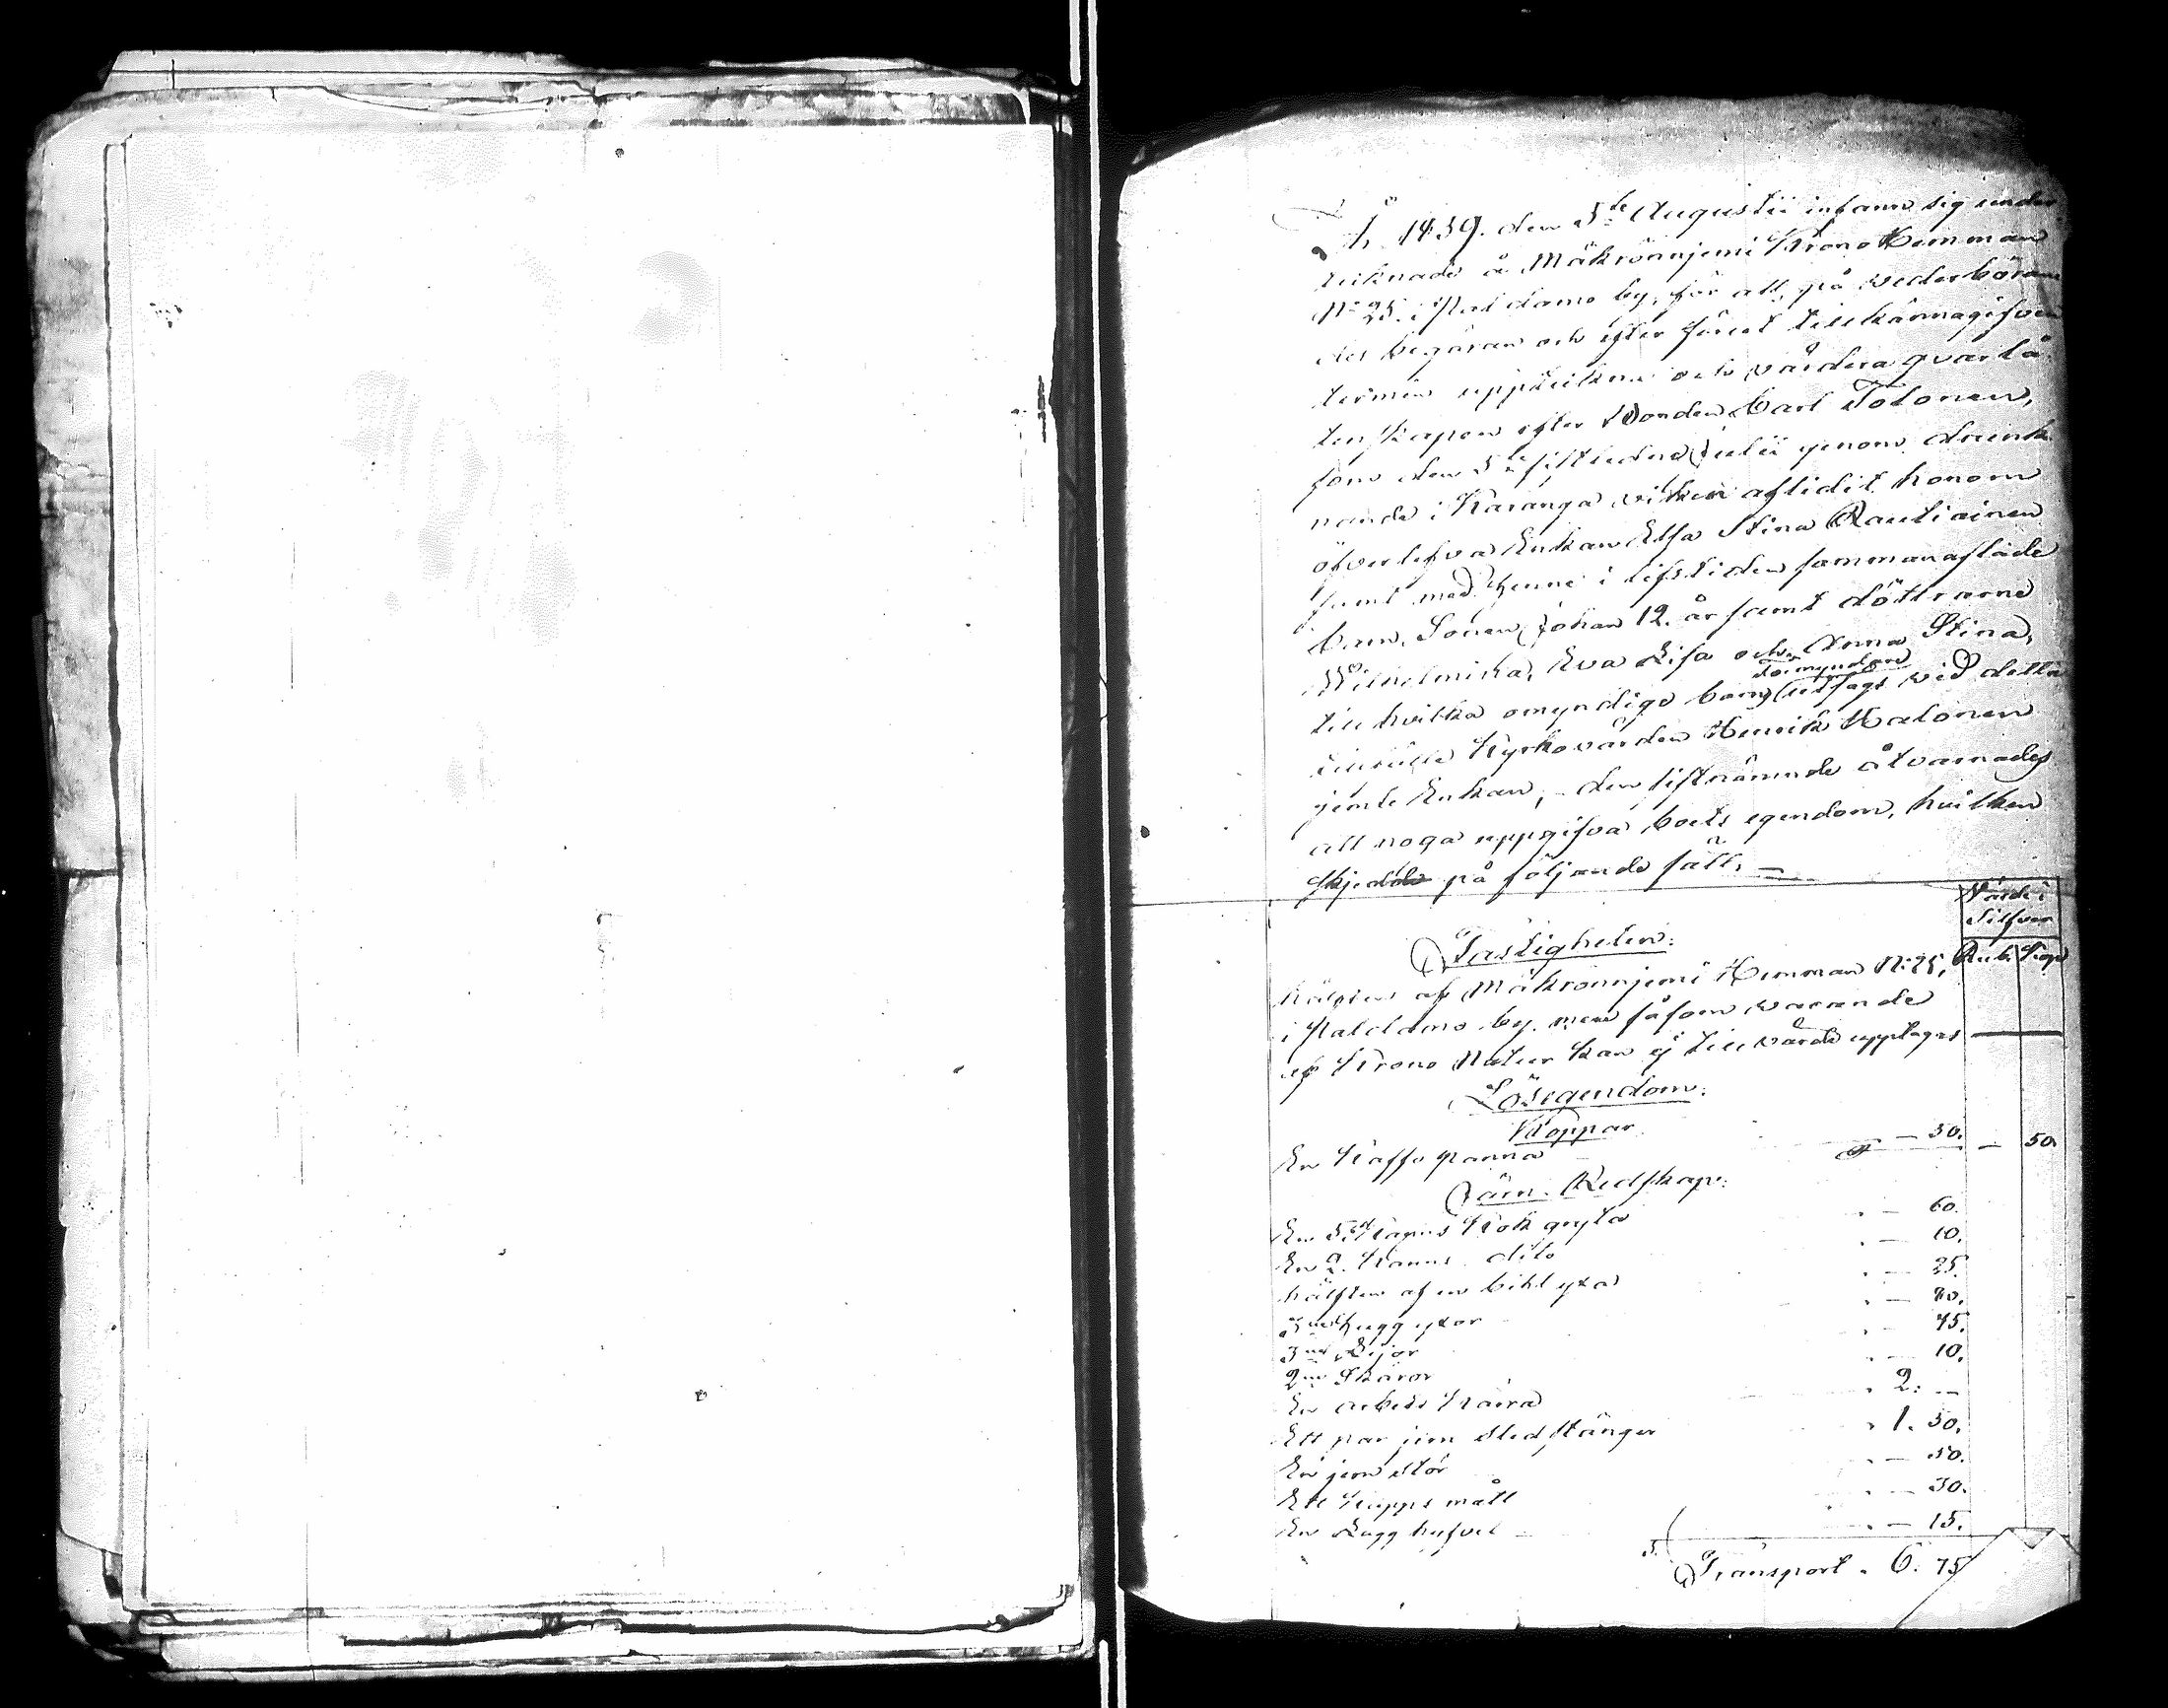 År 1839. den 5te Augustii infann sig under
teiknade å Mäkrönnjemi Krono Hemman
No 25. i Paldamo by, för att, på wederböran
des begäran och efter förut tillkännagifven
termin uppteikna och värdera qvarlå
tenskapen efter Bonden Carl Tolonen,
som den 5te sistledne Julii genom drunk
nande i Karanga viken aflidit honom
öfverlefva Enkan Elsa Stina Rautiainen
samt med henne i lifstiden sammanaflade
barn, Sonen Johan 12. år samt döttrarne
Wilhelmina, Eva Lisa och Anna Stina,
förmyndare
till hvilka omyndige barn utsågs vid detta
tillfälle Kyrkovärden Henrik Halonen
jemte Enkan, den sistnämnde åtvarnades
att noga uppgifva boets egendom, hvilken
skjedde på följande sätt. —
Värde i
Silfver
Fastigheten:
Rub. Kop
hälften af Mäkrönnjemi Hemman No 25,
i Paldamo by. men såsom warande
af Krono Natur kan ej till värde upptagas —
Lösegendom:
Koppar
En Kaffe panna — 50. — 50.
Järn Redskap:
En 5. Kanns Kok gryta — 60.
En 2. Kanns dito — 10.
hälften af en bihl yxa — 25.
3 hugg yxor — 80.
3 Lijor — 45.
2 Skäror — 10.
En arbets Kärra 2: —
Ett par jern Sledstänger 1. 50.
En jern stör — 50.
Ett Kapps mått — 30.
En Rugg hufvel — 15.
Transport. 6. 75